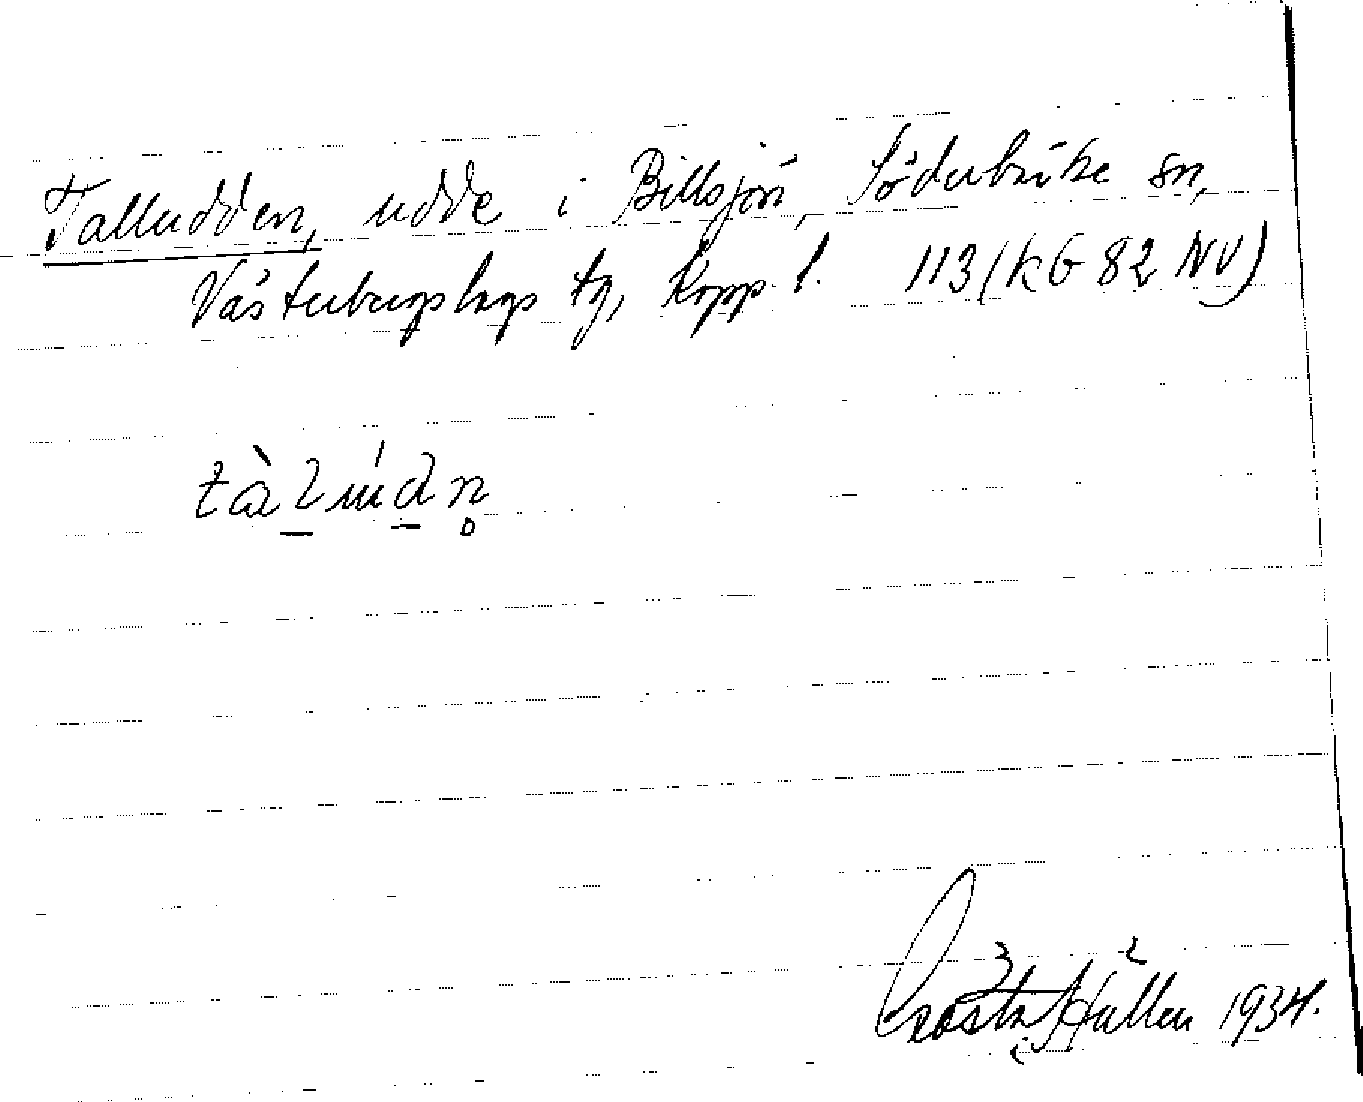 Talludden, udde i Billsjön, Söderbärke sn,
Västerbergslags tg, Kopp. l. 113 (kG 82 NV)
tàlúdn̥
Gösta Hallen 1934.